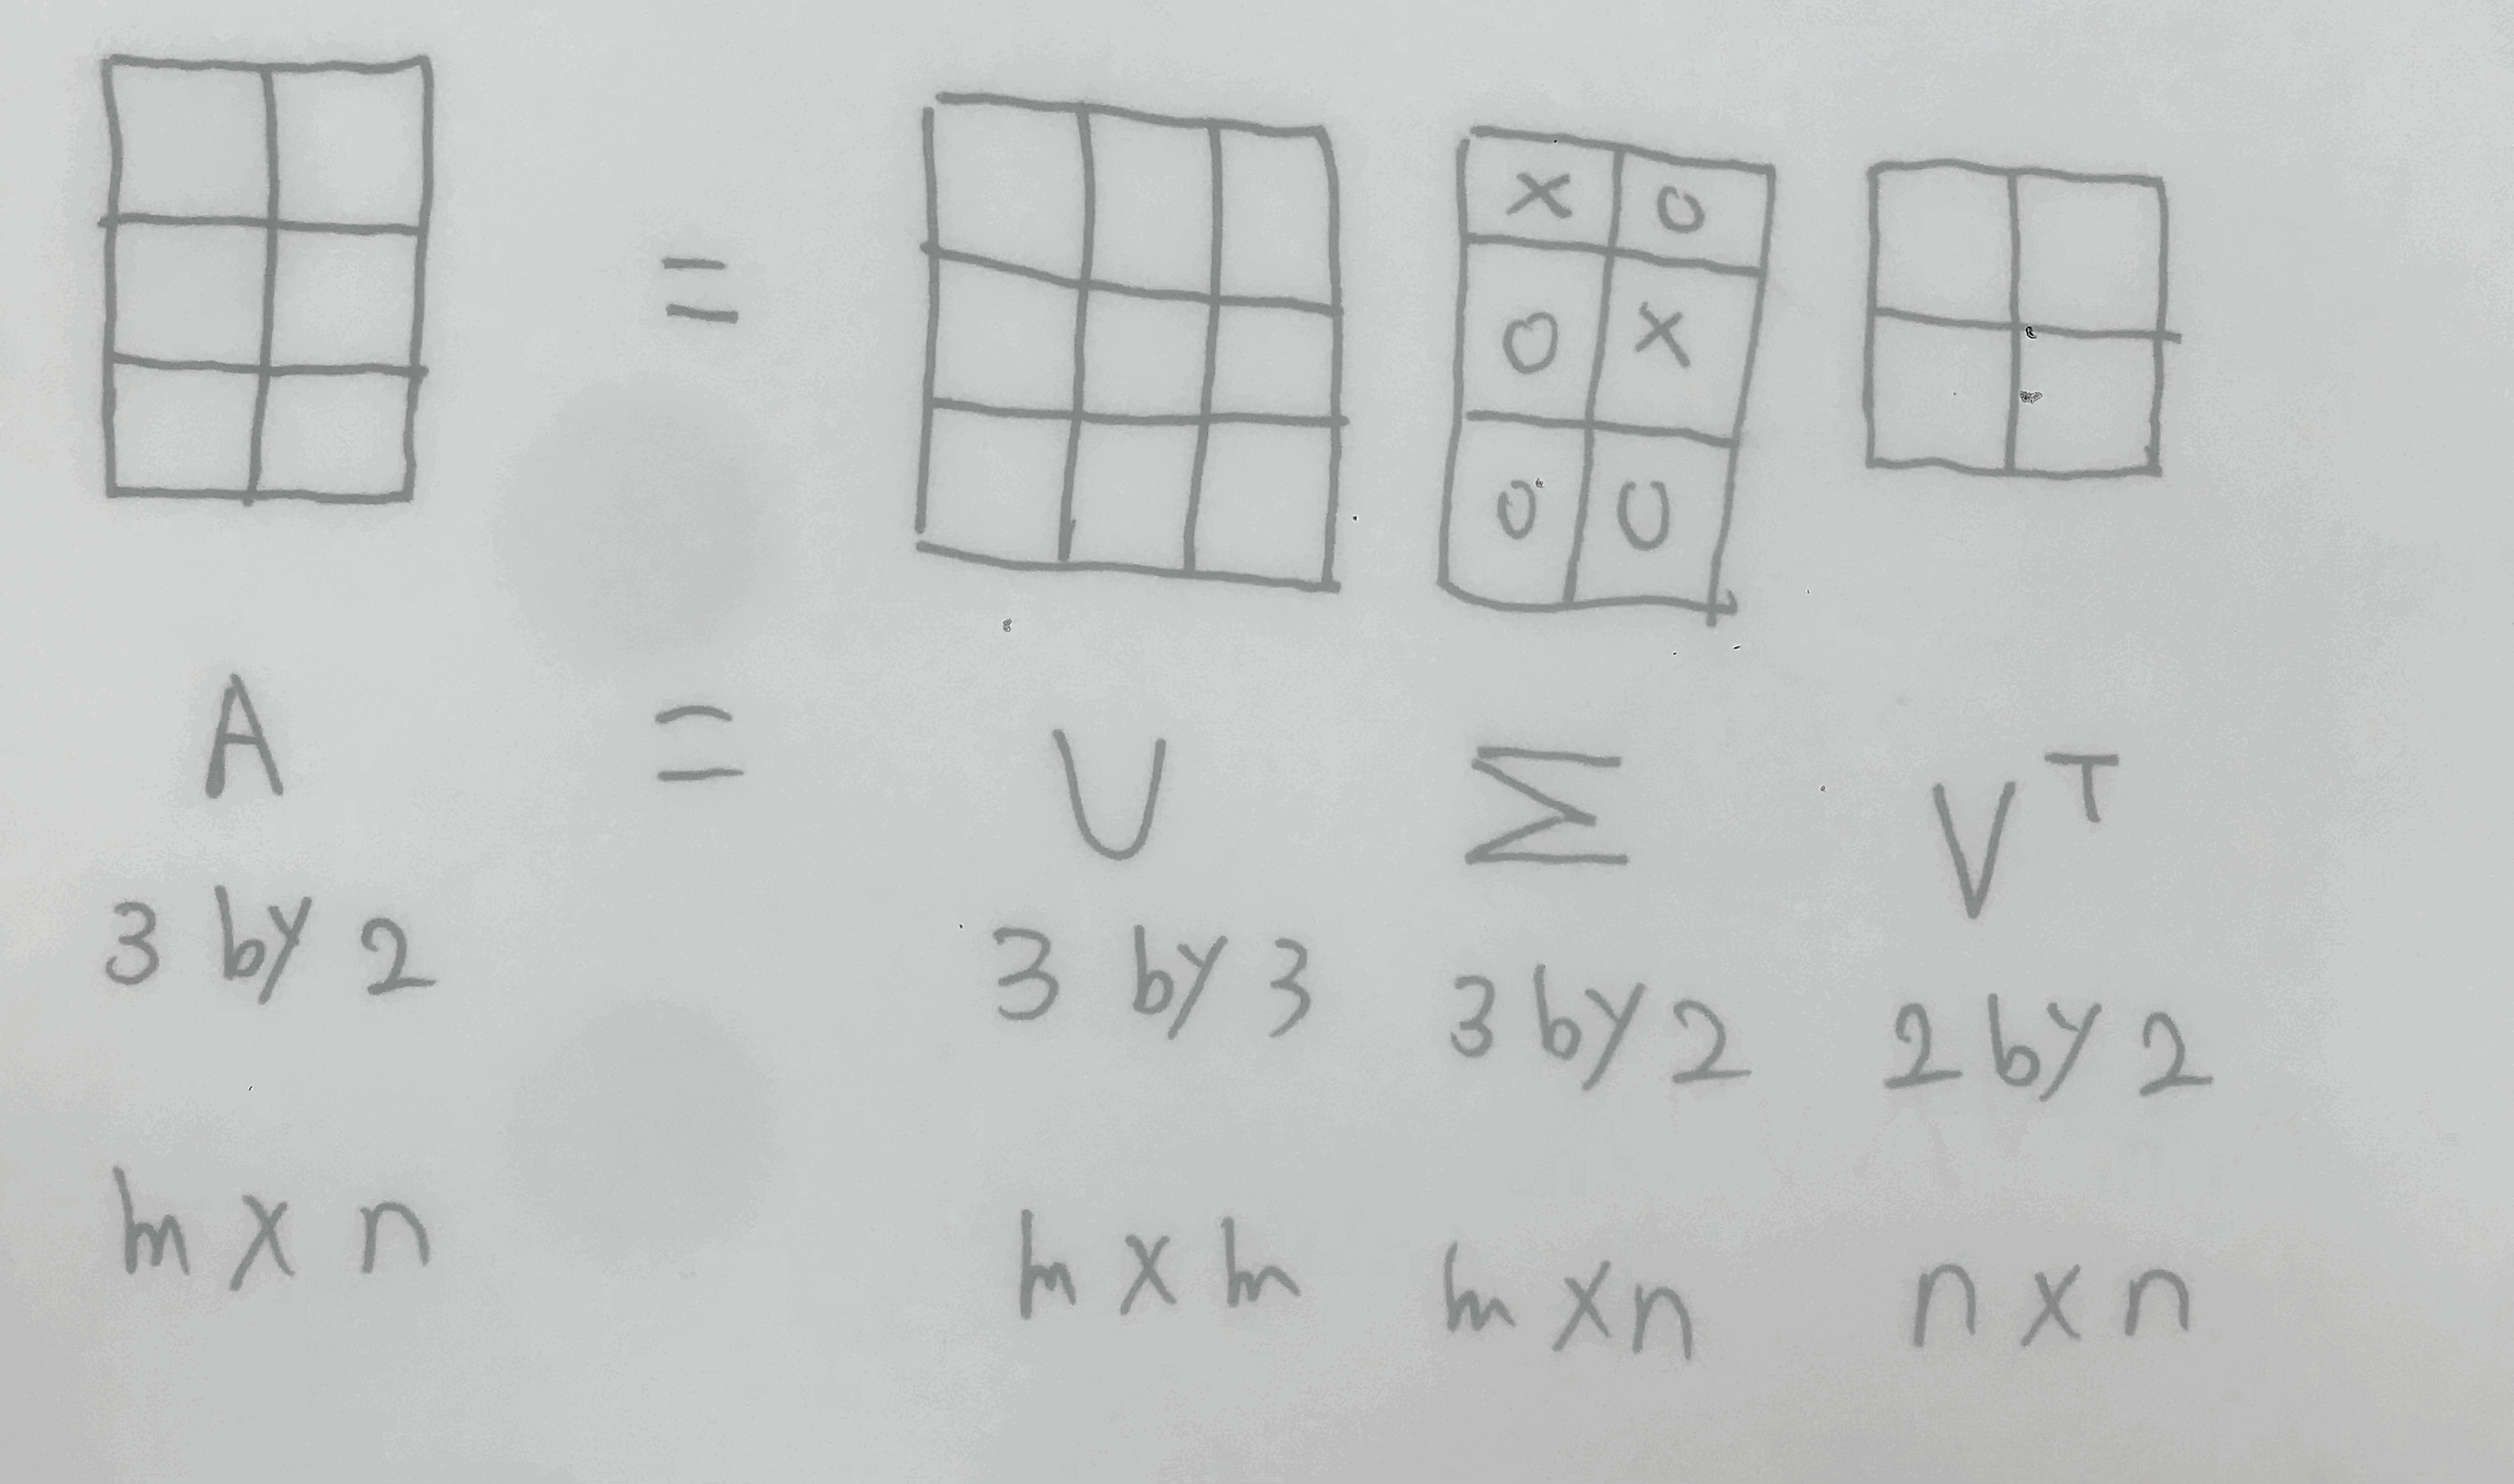 =
X O
O X
O O
A = U Σ V^T
3 by 2 3 by 3 3 by 2 2 by 2
m x n m x m m x n n x n